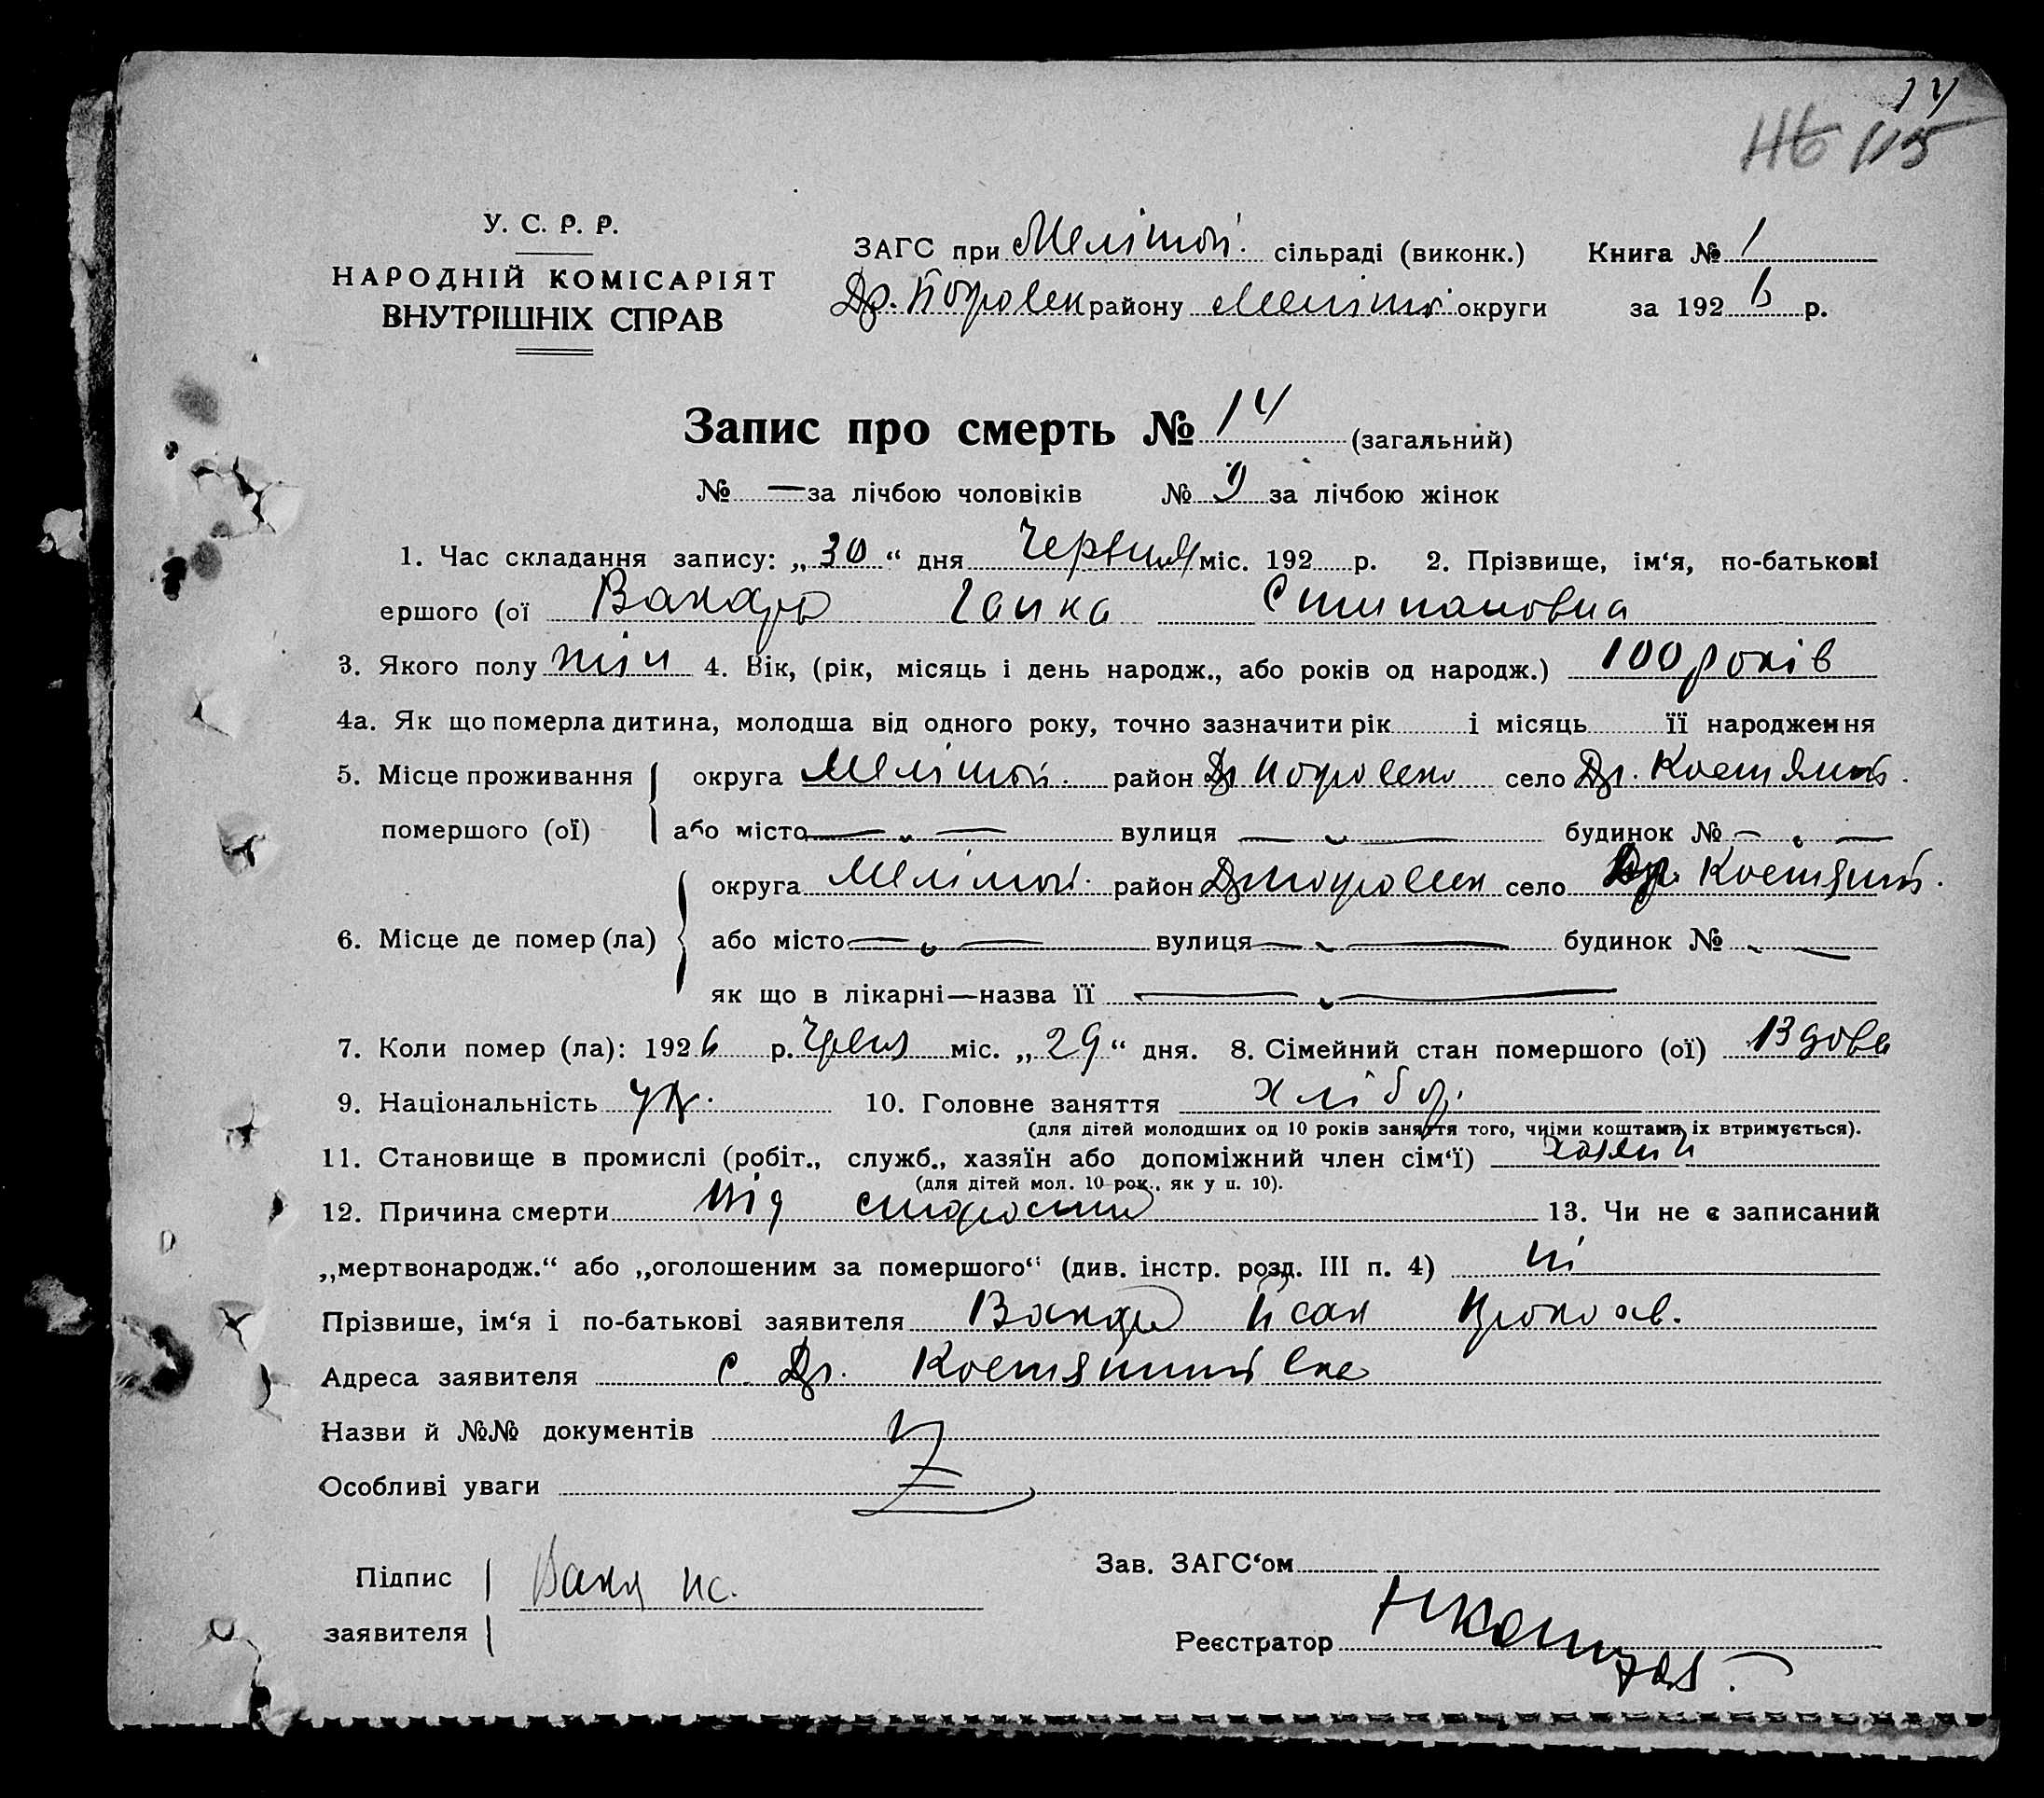 14
116 115
У. С. Р. Р.
НАРОДНІЙ КОМІСАРІЯТ
ВНУТРІШНІХ СПРАВ
ЗАГС при Мелітоп. сільраді (виконк.) Книга № 1
Др. Покровск району Меліт округи за 1926 р.
Запис про смерть № 14 (загальний)
№ — за лічбою чоловіків № за лічбою жінок
1. Час складання запису: „30“ дня Червня міс. 192 р. 2. Прізвище, ім‘я, по-батькові
ершого (ої Ганка Стипановна
3. Якого полу жін 4. Вік, (рік, місяць і день народж., або років од народж.) 100 років
4а. Як що померла дитина, молодша від одного року, точно зазначити рік і місяць її народження
5. Місце проживання округа Меліттоп. район Др Покровско село Др. Костянт.
помершого (ої) або місто — „ — вулиця — „ — будинок № — „ —
округа Мелітоп. район Др Покровск село Др. Костянт.
6. Місце де помер (ла) або місто — „ — вулиця — „ — будинок № „ —
як що в лікарні—назва її — „ —
7. Коли помер (ла): 1926 р. Червн міс. „29“ дня. 8. Сімейний стан помершого (ої) Вдова
9. Національність Ук. 10. Головне заняття хлібор.
(для дітей молодших од 10 років заняття того, чиїми коштами їх втримується).
11. Становище в промислі (робіт., служб., хазяїн або допоміжний член сім‘ї) хазяїн
(для дітей мол. 10 рок., як у п. 10).
12. Причина смерти від старости 13. Чи не є записаний
„мертвонародж.“ або „оголошеним за помершого“ (див. інстр. розд. III п. 4) ні
Прізвише, ім‘я і по-батькові заявителя Ісак Прокоф.
Адреса заявителя с. Др. Костянтинівка
Назви й №№ документів
Особливі уваги
Підпис
заявителя
Зав. ЗАГС‘ом
Реєстратор